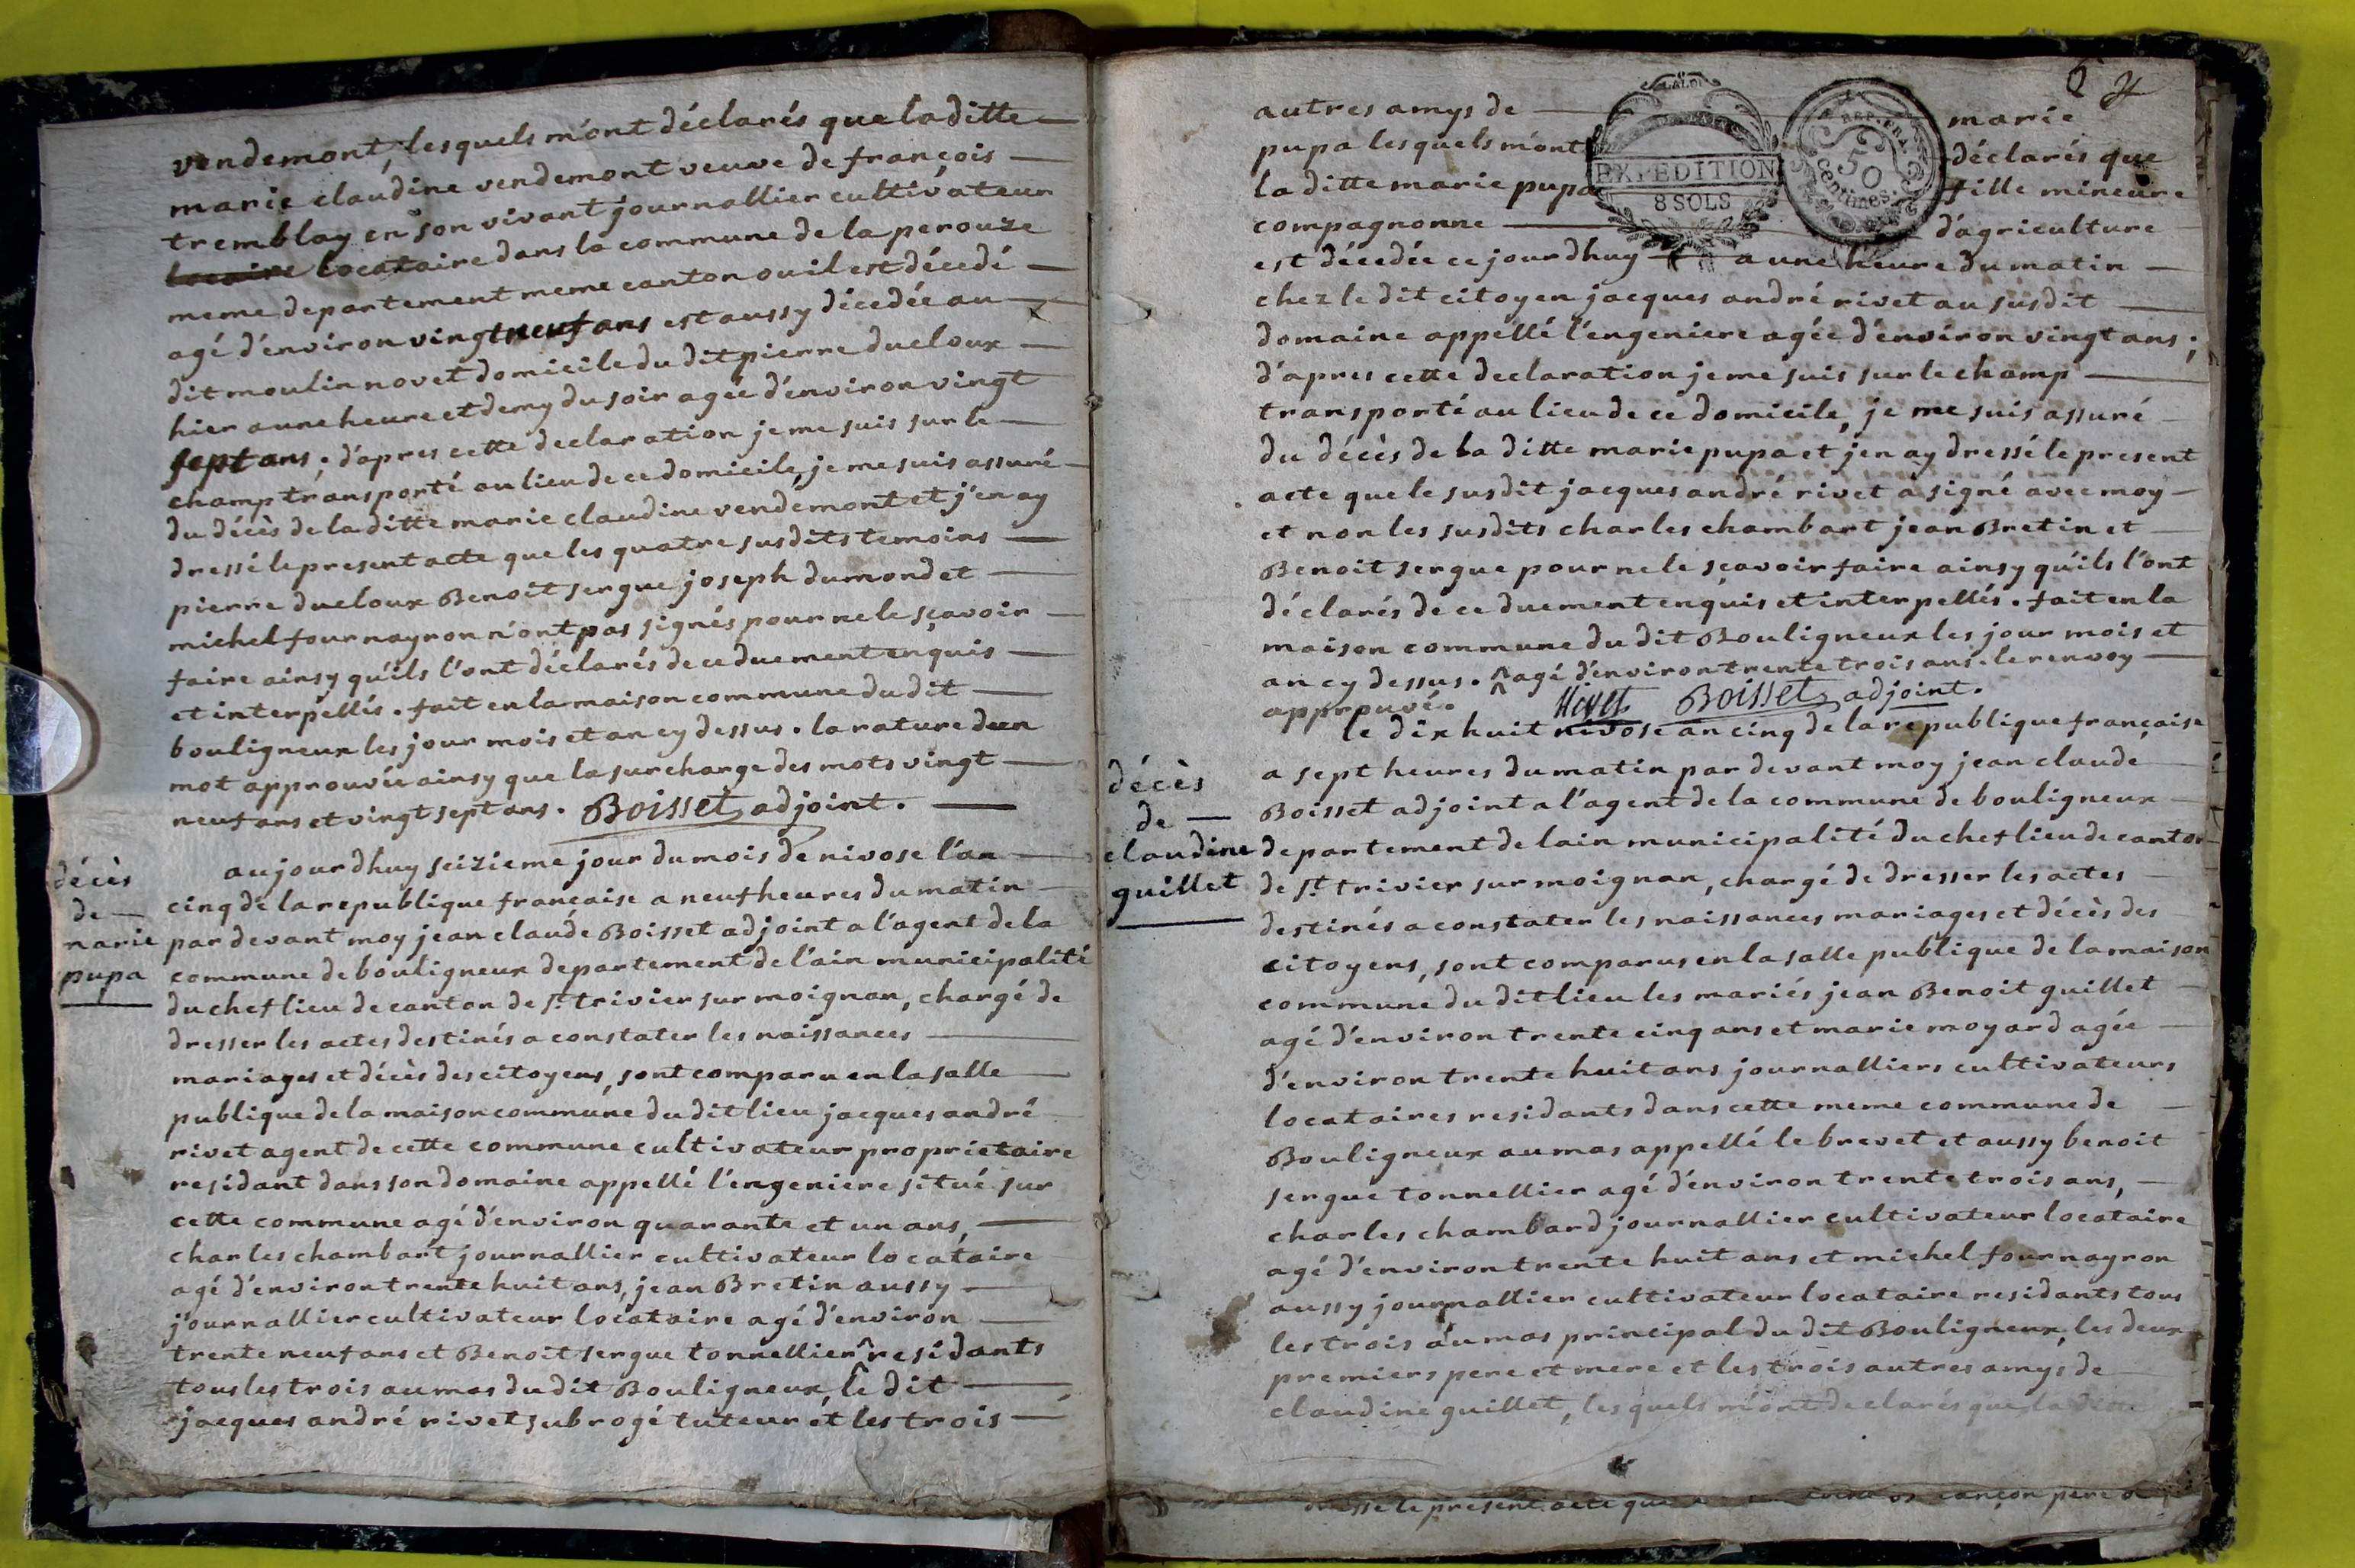 vendemont, lesquels m'ont déclarés que la ditte
marie claudine vendemont veuve de françois
tremblay en son vivant journallier cultivateur
locaire locataire dans la commune de la perouze
meme departement meme canton ou il est décedé
agé d'environ vingt neuf ans est aussy décedée au
dit moulin novet domicile du dit pierre ducloux
hier a une heure et demy du soir agée d'environ vingt
sept ans ; d'apres cette declaration je me suis sur le
champ transporté au lieu de ce domicile, je me suis assuré
du décès de la ditte marie claudine vendemont et j'en ay
dressé le present acte que les quatre susdits temoins
pierre ducloux Benoit sergue joseph dumond et
michel fournayron n'ont pas signés pour ne le sçavoir
faire ainsy qu'ils l'ont déclarés de ce duement enquis
et interpellés . fait en la maison commune du dit
bouligneux les jour mois et an cy dessus . la rature d'un
mot approuvée ainsy que la surcharge des mots vingt
neuf ans et vingt sept ans . Boisset adjoint .
décès
de
marie
pupa
aujourdhuy seizieme jour du mois de nivose l'an
cinq de la republique française a neuf heures du matin
par devant moy jean claude Boisset adjoint a l'agent de la
commune de bouligneux departement de l'ain municipalité
du chef lieu de canton de st trivier sur moignan, chargé de
dresser les actes destinés a constater les naissances
mariages et décès des citoyens, sont comparu en la salle
publique de la maison commune du dit lieu jacques andré
rivet agent de cette commune cultivateur proprietaire
residant dans son domaine appellé l'engeniere situé sur
cette commune agé d'environ quarante et un ans,
charles chambart journallier cultivateur locataire
agé d'environ trente huit ans, jean Bretin aussy
journallier cultivateur locataire agé d'environ
trente neuf ans et Benoit sergue tonnellier ^ residants
tous les trois au mas du dit Bouligneux, le dit
jacques andré rivet subrogé tuteur et les trois
6
autres amys de marie
pupa lesquels m'ont déclarés que
la ditte marie pupa fille mineure
compagnonne d'agriculture
LA LOI
EXPEDITION
8 SOLS
REP. FRA.
50
centimes.
est décedée ce jourdhuy a une heure du matin
chez le dit citoyen jacques andré rivet au susdit
domaine appellé l'engeniere agée d'environ vingt ans ;
d'apres cette declaration je me suis sur le champ
transporté au lieu de ce domicile, je me suis assuré
du décès de la ditte marie pupa et j'en ay dressé le present
acte que le susdit jacques andré rivet a signé avec moy
et non les susdits charles chambart jean Bretin et
Benoit sergue pour ne le sçavoir faire ainsy qu'ils l'ont
déclarés de ce duement enquis et interpellés . fait en la
maison commune du dit Bouligneux les jour mois et
an cy dessus . ^ agé d'environ trente trois ans . le renvoy
approuvé. Rivet Boisset adjoint .
décès
de
claudine
guillet
le dix huit nivose an cinq de la republique française
a sept heures du matin par devant moy jean claude
Boisset adjoint a l'agent de la commune de bouligneux
departement de lain municipalité du chef lieu de canton
de st trivier sur moignan, chargé de dresser les actes
destinés a constater les naissances mariages et décès des
citoyens, sont comparus en la salle publique de la maison
commune du dit lieu les mariés jean Benoit guillet
agé d'environ trente cinq ans et marie moyard agée
d'environ trente huit ans journalliers cultivateurs
locataires residants dans cette meme commune de
Bouligneux au mas appellé le brevet et aussy benoit
sergue tonnellier agé d'environ trente trois ans,
charles chambard journallier cultivateur locataire
agé d'environ trente huit ans et michel fournayron
aussy journallier cultivateur locataire residants tous
les trois au mas principal du dit Bouligneux, les deux
premiers pere et mere et les trois autres amys de
claudine guillet, lesquels m'ont declarés que la ditte
dressé le present acte que pere